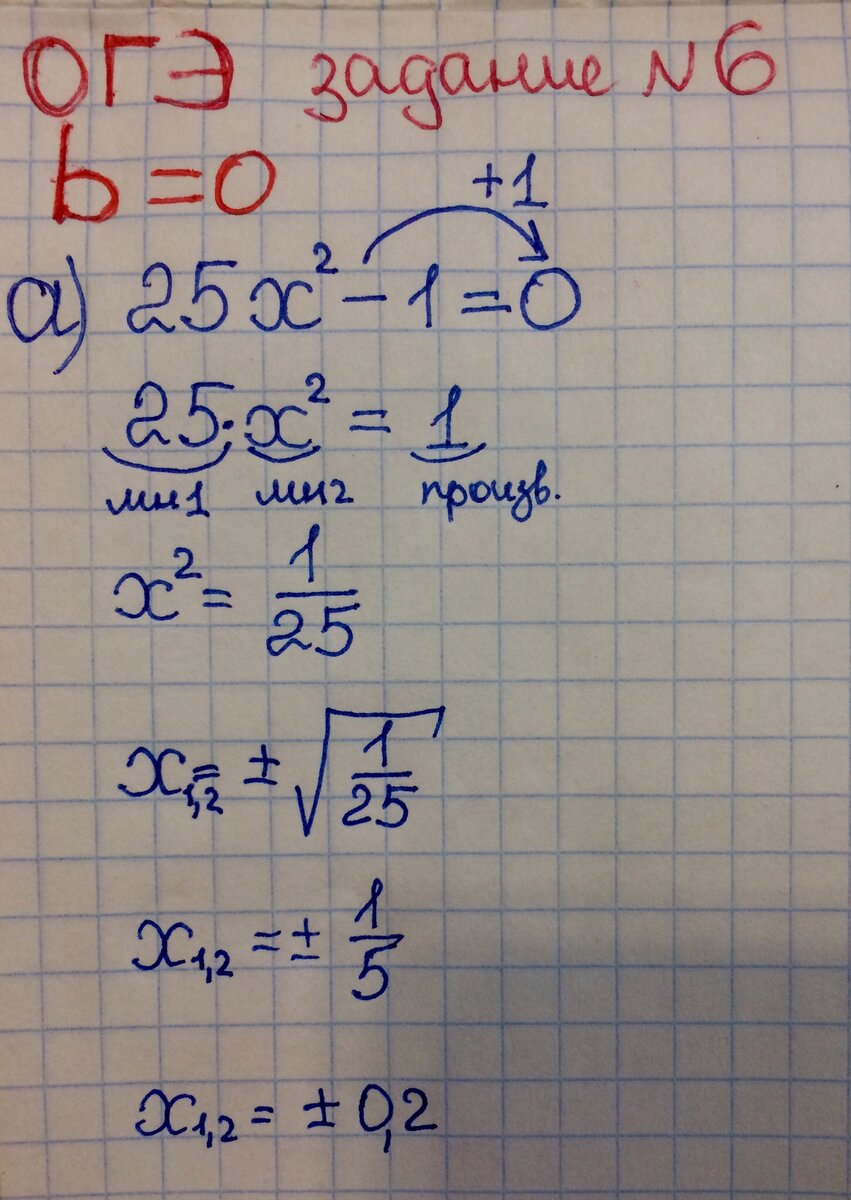 ОГЭ задание №6
b=0
+1
а) 25x² − 1 = 0
25·x² = 1
мн1 мн2 произв.
x² = 1/25
x₁,₂ = ± √(1/25)
x₁,₂ = ± 1/5
x₁,₂ = ± 0,2